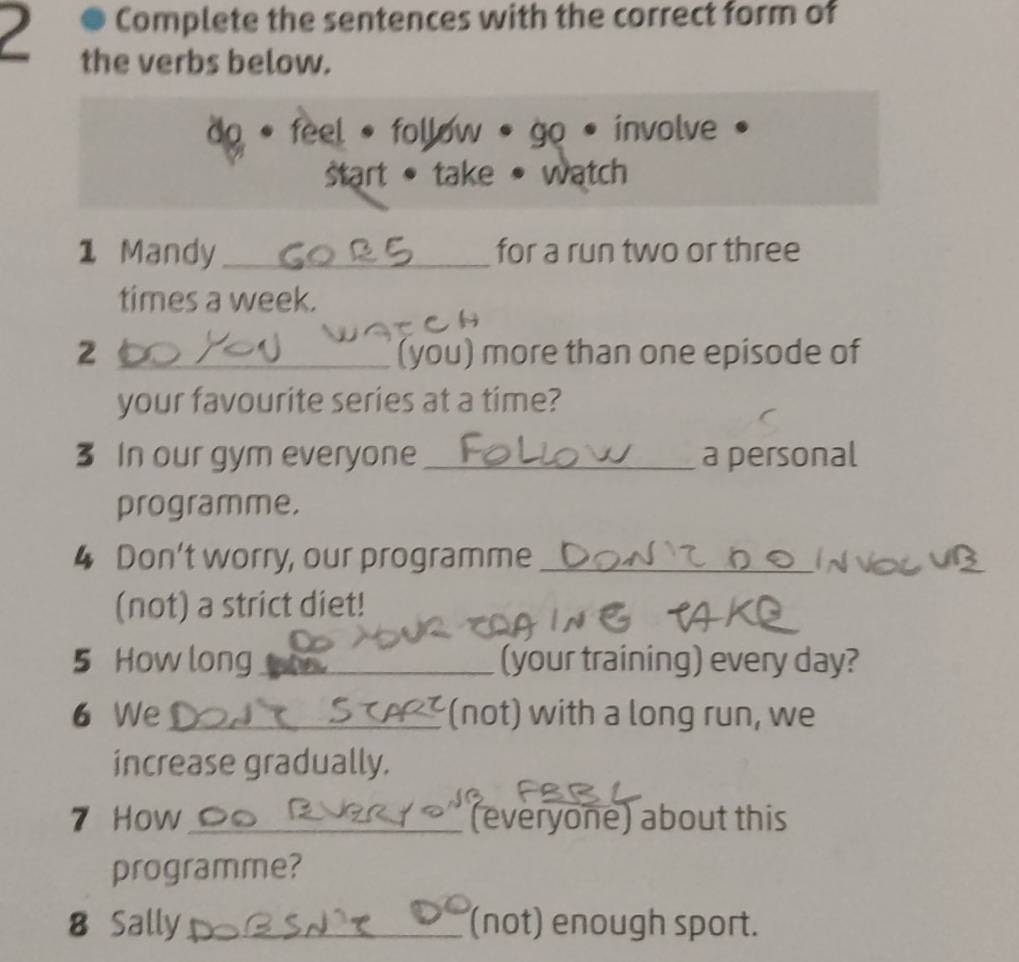 2 Complete the sentences with the correct form of
the verbs below.
do • feel • follow • go • involve •
start • take • watch
1 Mandy GOES for a run two or three
times a week.
WATCH
2 DO YOU (you) more than one episode of
your favourite series at a time?
S
3 In our gym everyone FOLLOW a personal
programme.
4 Don't worry, our programme DON'T DO INVOLVE
(not) a strict diet!
DO YOUR TRAINE TAKE
5 How long (your training) every day?
6 We DON'T START (not) with a long run, we
increase gradually.
FEEL
7 How DO EVERYONE (everyone) about this
programme?
8 Sally DOESN'T DO (not) enough sport.